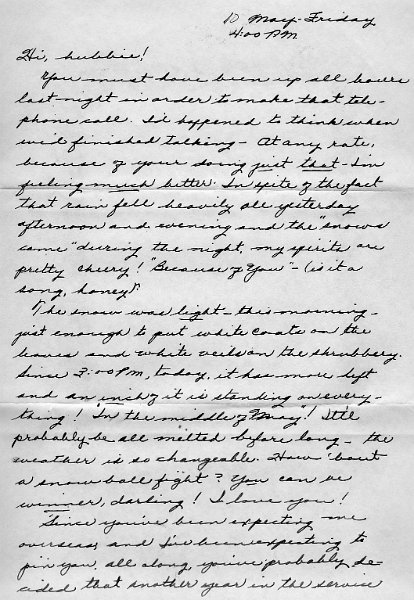 10 May - Friday
4:00 PM
Hi, hubbie!
You must have been up all hours
last night in order to make that tele-
phone call. I'd happened to think when
we'd finished talking - At any rate,
because of your doing just that - I'm
feeling much better. In spite of the fact
that rain fell heavily all yesterday
afternoon and evening and the "snows
came" during the night, my spirits are
pretty cheery! "Because of You" - (is it a
song, honey)?
The snow was light - this morning -
just enough to put white coats on the
leaves and white veils on the shrubbery.
Since 3:00 PM, today, it has more left
and an inch of it is standing on every-
thing! "In the middle of May"! It'll
probably be all melted before long - the
weather is so changeable. How 'bout
a snow ball fight? You can be
winner, darling! I love you!
Since you've been expecting me
overseas and I've been expecting to
join you, all along, you've probably de-
cided that another year in the service